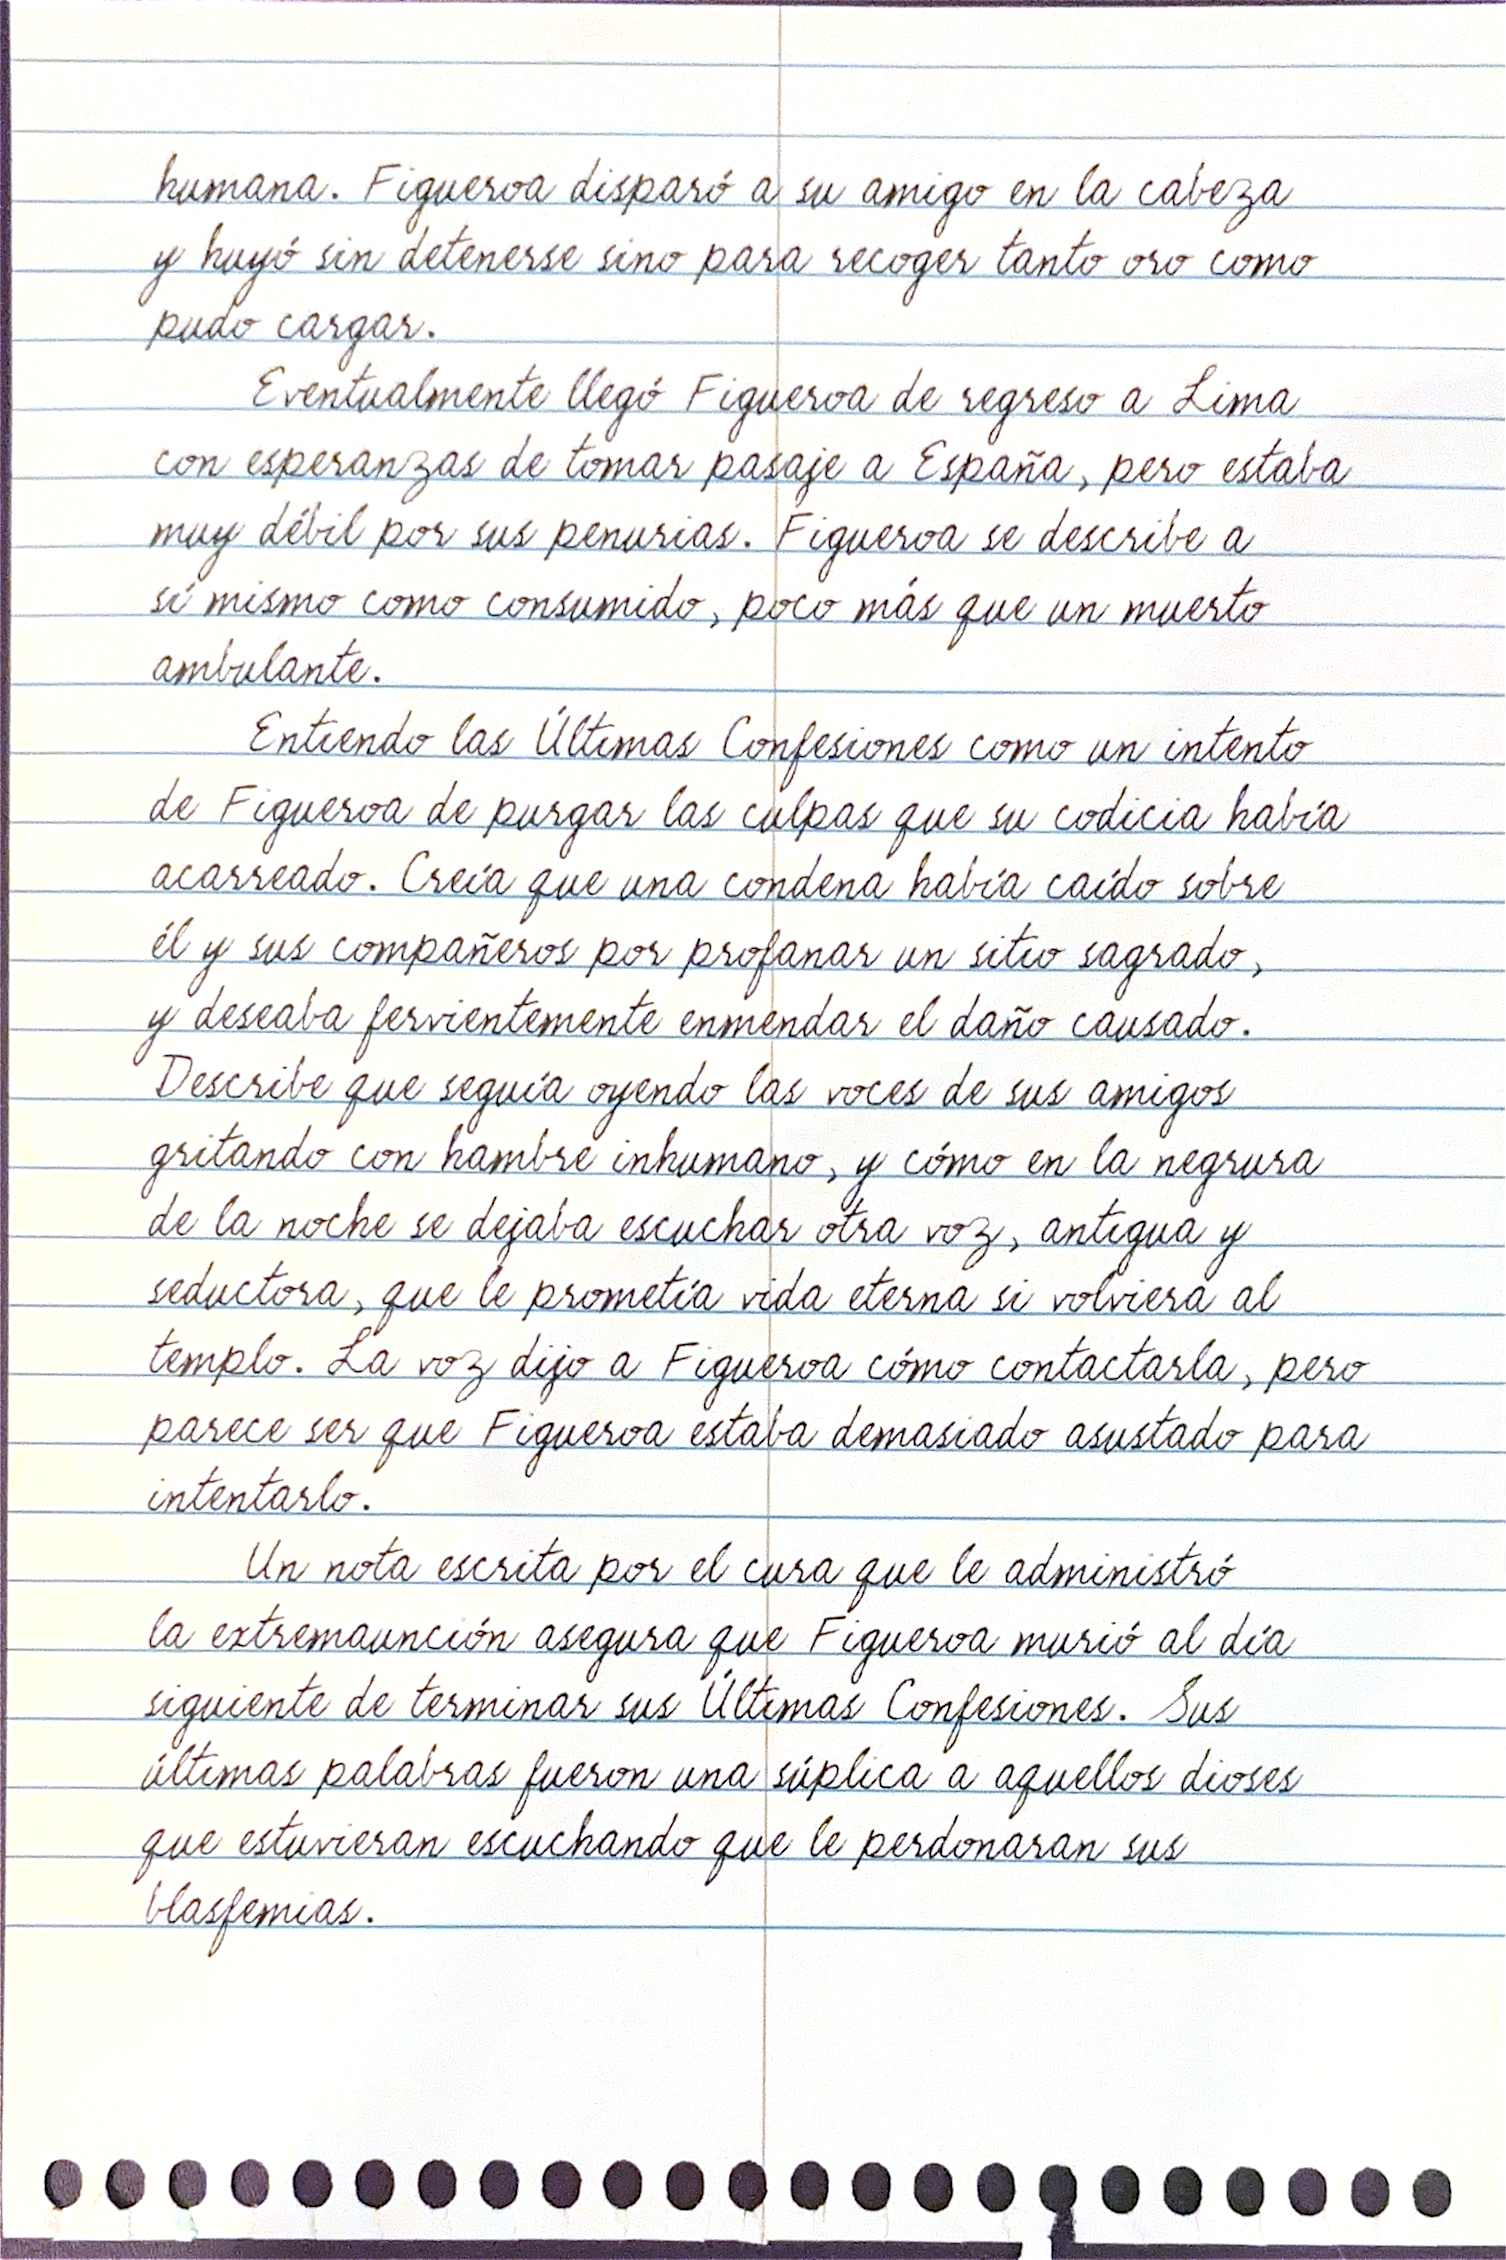 humana. Figueroa disparó a su amigo en la cabeza
y huyó sin detenerse sino para recoger tanto oro como
pudo cargar.
Eventualmente llegó Figueroa de regreso a Lima
con esperanzas de tomar pasaje a España, pero estaba
muy débil por sus penurias. Figueroa se describe a
sí mismo como consumido, poco más que un muerto
ambulante.
Entiendo las Últimas Confesiones como un intento
de Figueroa de purgar las culpas que su codicia había
acarreado. Creía que una condena había caído sobre
él y sus compañeros por profanar un sitio sagrado,
y deseaba fervientemente enmendar el daño causado.
Describe que seguía oyendo las voces de sus amigos
gritando con hambre inhumano, y cómo en la negrura
de la noche se dejaba escuchar otra voz, antigua y
seductora, que le prometía vida eterna si volviera al
templo. La voz dijo a Figueroa cómo contactarla, pero
parece ser que Figueroa estaba demasiado asustado para
intentarlo.
Un nota escrita por el cura que le administró
la extremaunción asegura que Figueroa murió al día
siguiente de terminar sus Últimas Confesiones. Sus
últimas palabras fueron una súplica a aquellos dioses
que estuvieran escuchando que le perdonaran sus
blasfemias.